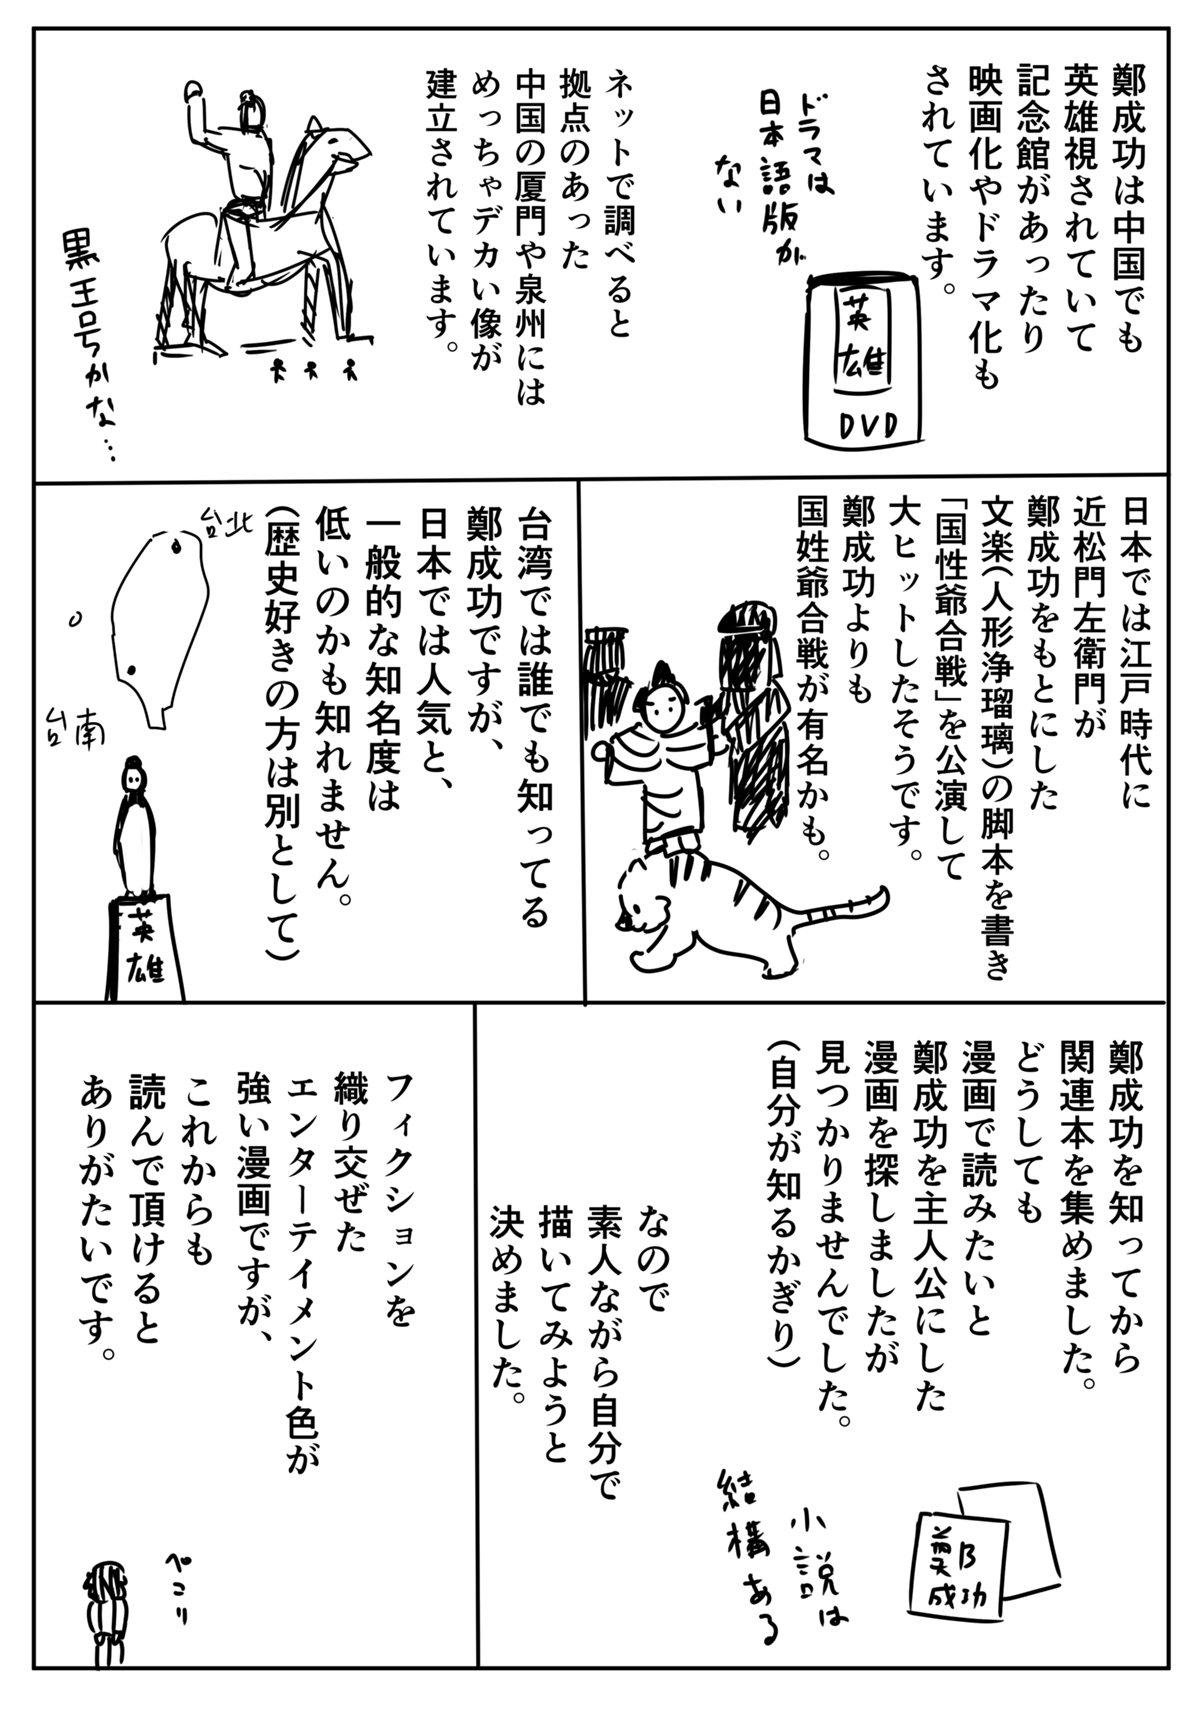 鄭成功は中国でも
英雄視されていて
記念館があったり
映画化やドラマ化も
されています。
ドラマは
日本語版が
ない
英雄
DVD
ネットで調べると
拠点のあった
中国の厦門や泉州には
めっちゃデカい像が
建立されています。
黒王号かな…
日本では江戸時代に
近松門左衛門が
鄭成功をもとにした
文楽(人形浄瑠璃)の脚本を書き
「国性爺合戦」を公演して
大ヒットしたそうです。
鄭成功よりも
国姓爺合戦が有名かも。
台湾では誰でも知ってる
鄭成功ですが、
日本では人気と、
一般的な知名度は
低いのかも知れません。
(歴史好きの方は別として)
台北
台南
英雄
鄭成功を知ってから
関連本を集めました。
どうしても
漫画で読みたいと
鄭成功を主人公にした
漫画を探しましたが
見つかりませんでした。
(自分が知るかぎり)
鄭
成功
小説は
結構ある
なので
素人ながら自分で
描いてみようと
決めました。
フィクションを
織り交ぜた
エンターテイメント色が
強い漫画ですが、
これからも
読んで頂けると
ありがたいです。
ペコリ